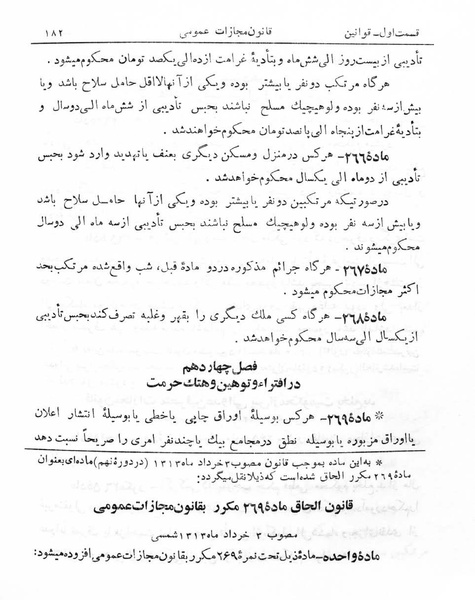 قسمت اول ـ قوانین قانون مجازات عمومی ۱۸۲
تأدیبی از بیست روز الی شش ماه و بتأدیۀ غرامت از ده الی یکصد تومان محکوم میشود.
هر گاه مرتکب دو نفر یا بیشتر بوده و یکی از آنها لااقل حامل سلاح باشد ویا
بیش از سه نفر بوده ولو هیچیك مسلح نباشند بحبس تأدیبی از شش ماه الی دو سال و
بتأدیۀ غرامت از پنجاه الی پانصد تومان محکوم خواهند شد.
مادۀ ۲۶۶ـ هر کس در منزل و مسکن دیگری بعنف یا تهدید وارد شود بحبس
تأدیبی از دو ماه الی یکسال محکوم خواهد شد.
در صورتیکه مرتکبین دو نفر یا بیشتر بوده و یکی از آنها حامل سلاح باشد
ویا بیش از سه نفر بوده ولو هیچیك مسلح نباشند بحبس تأدیبی از سه ماه الی دو سال
محکوم میشوند.
مادۀ ۲۶۷ـ هر گاه جرائم مذکوره در دو مادۀ قبل، شب واقع شده مرتکب بحد
اکثر مجازات محکوم میشود.
مادۀ ۲۶۸ـ هر گاه کسی ملك دیگری را بقهر وغلبه تصرف کند بحبس تأدیبی
از یکسال الی سه سال محکوم خواهد شد.
فصل چهاردهم
در افتراء و توهین و هتك حرمت
* مادۀ ۲۶۹ـ هر کس بوسیلۀ اوراق چاپی یا خطی یا بوسیلۀ انتشار اعلان
یا اوراق مزبوره یا بوسیله نطق در مجامع بیك یا چند نفر امری را صریحاً نسبت دهد
* به این ماده بموجب قانون مصوب ۳ خرداد ماه ۱۳۱۳ (در دورۀ نهم) ماده‌ای بعنوان
مادۀ ۲۶۹ مکرر الحاق شده است که ذیلا نقل میگردد:
قانون الحاق مادۀ ۲۶۹ مکرر بقانون مجازات عمومی
مصوب ۳ خرداد ماه ۱۳۱۳ شمسی
مادۀ واحده ـ مادۀ ذیل تحت نمرۀ ۲۶۹ مکرر بقانون مجازات عمومی افزوده میشود: